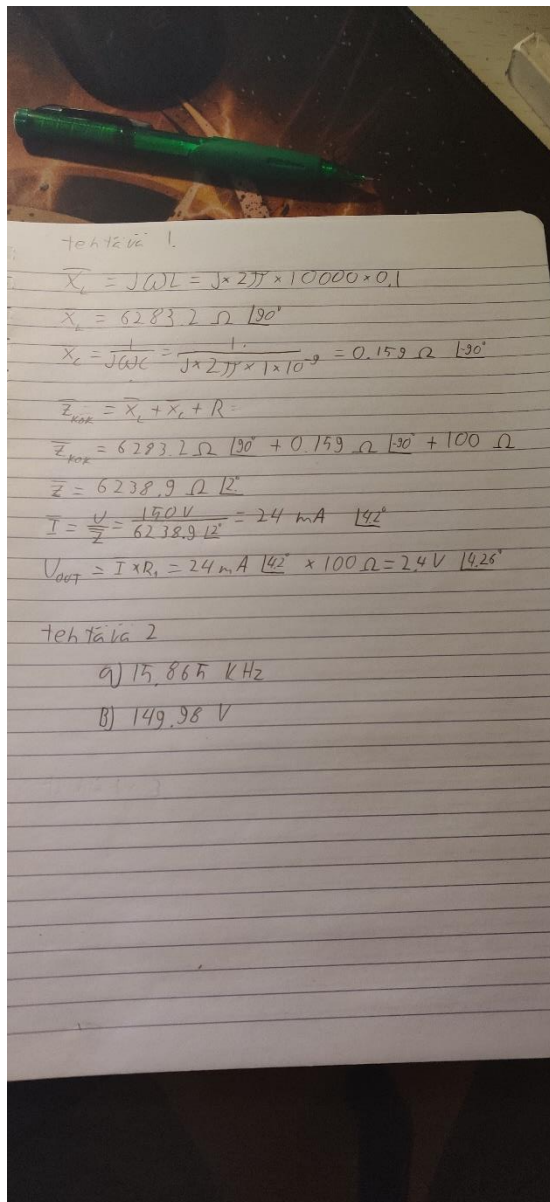 tehtävä 1.
X̅L = JωL = J×2π×10000×0.1
X̅L = 6283.2 Ω ∠90°
XC = 1/JωC = 1./J×2π×1×10⁻⁹ = 0.159 Ω ∠-90°
Z̅KOK = X̅L + X̅C + R =
Z̅KOK = 6283.2 Ω ∠90° + 0.159 Ω ∠-90° + 100 Ω
Z̅ = 6238.9 Ω ∠2°
I̅ = U/Z̅ = 150V/6238.9∠2° = 24 mA ∠42°
UOUT = I̅×R1 = 24mA ∠42° × 100Ω = 2.4V ∠4.26°
tehtävä 2
a) 15.865 KHz
B) 149.98 V